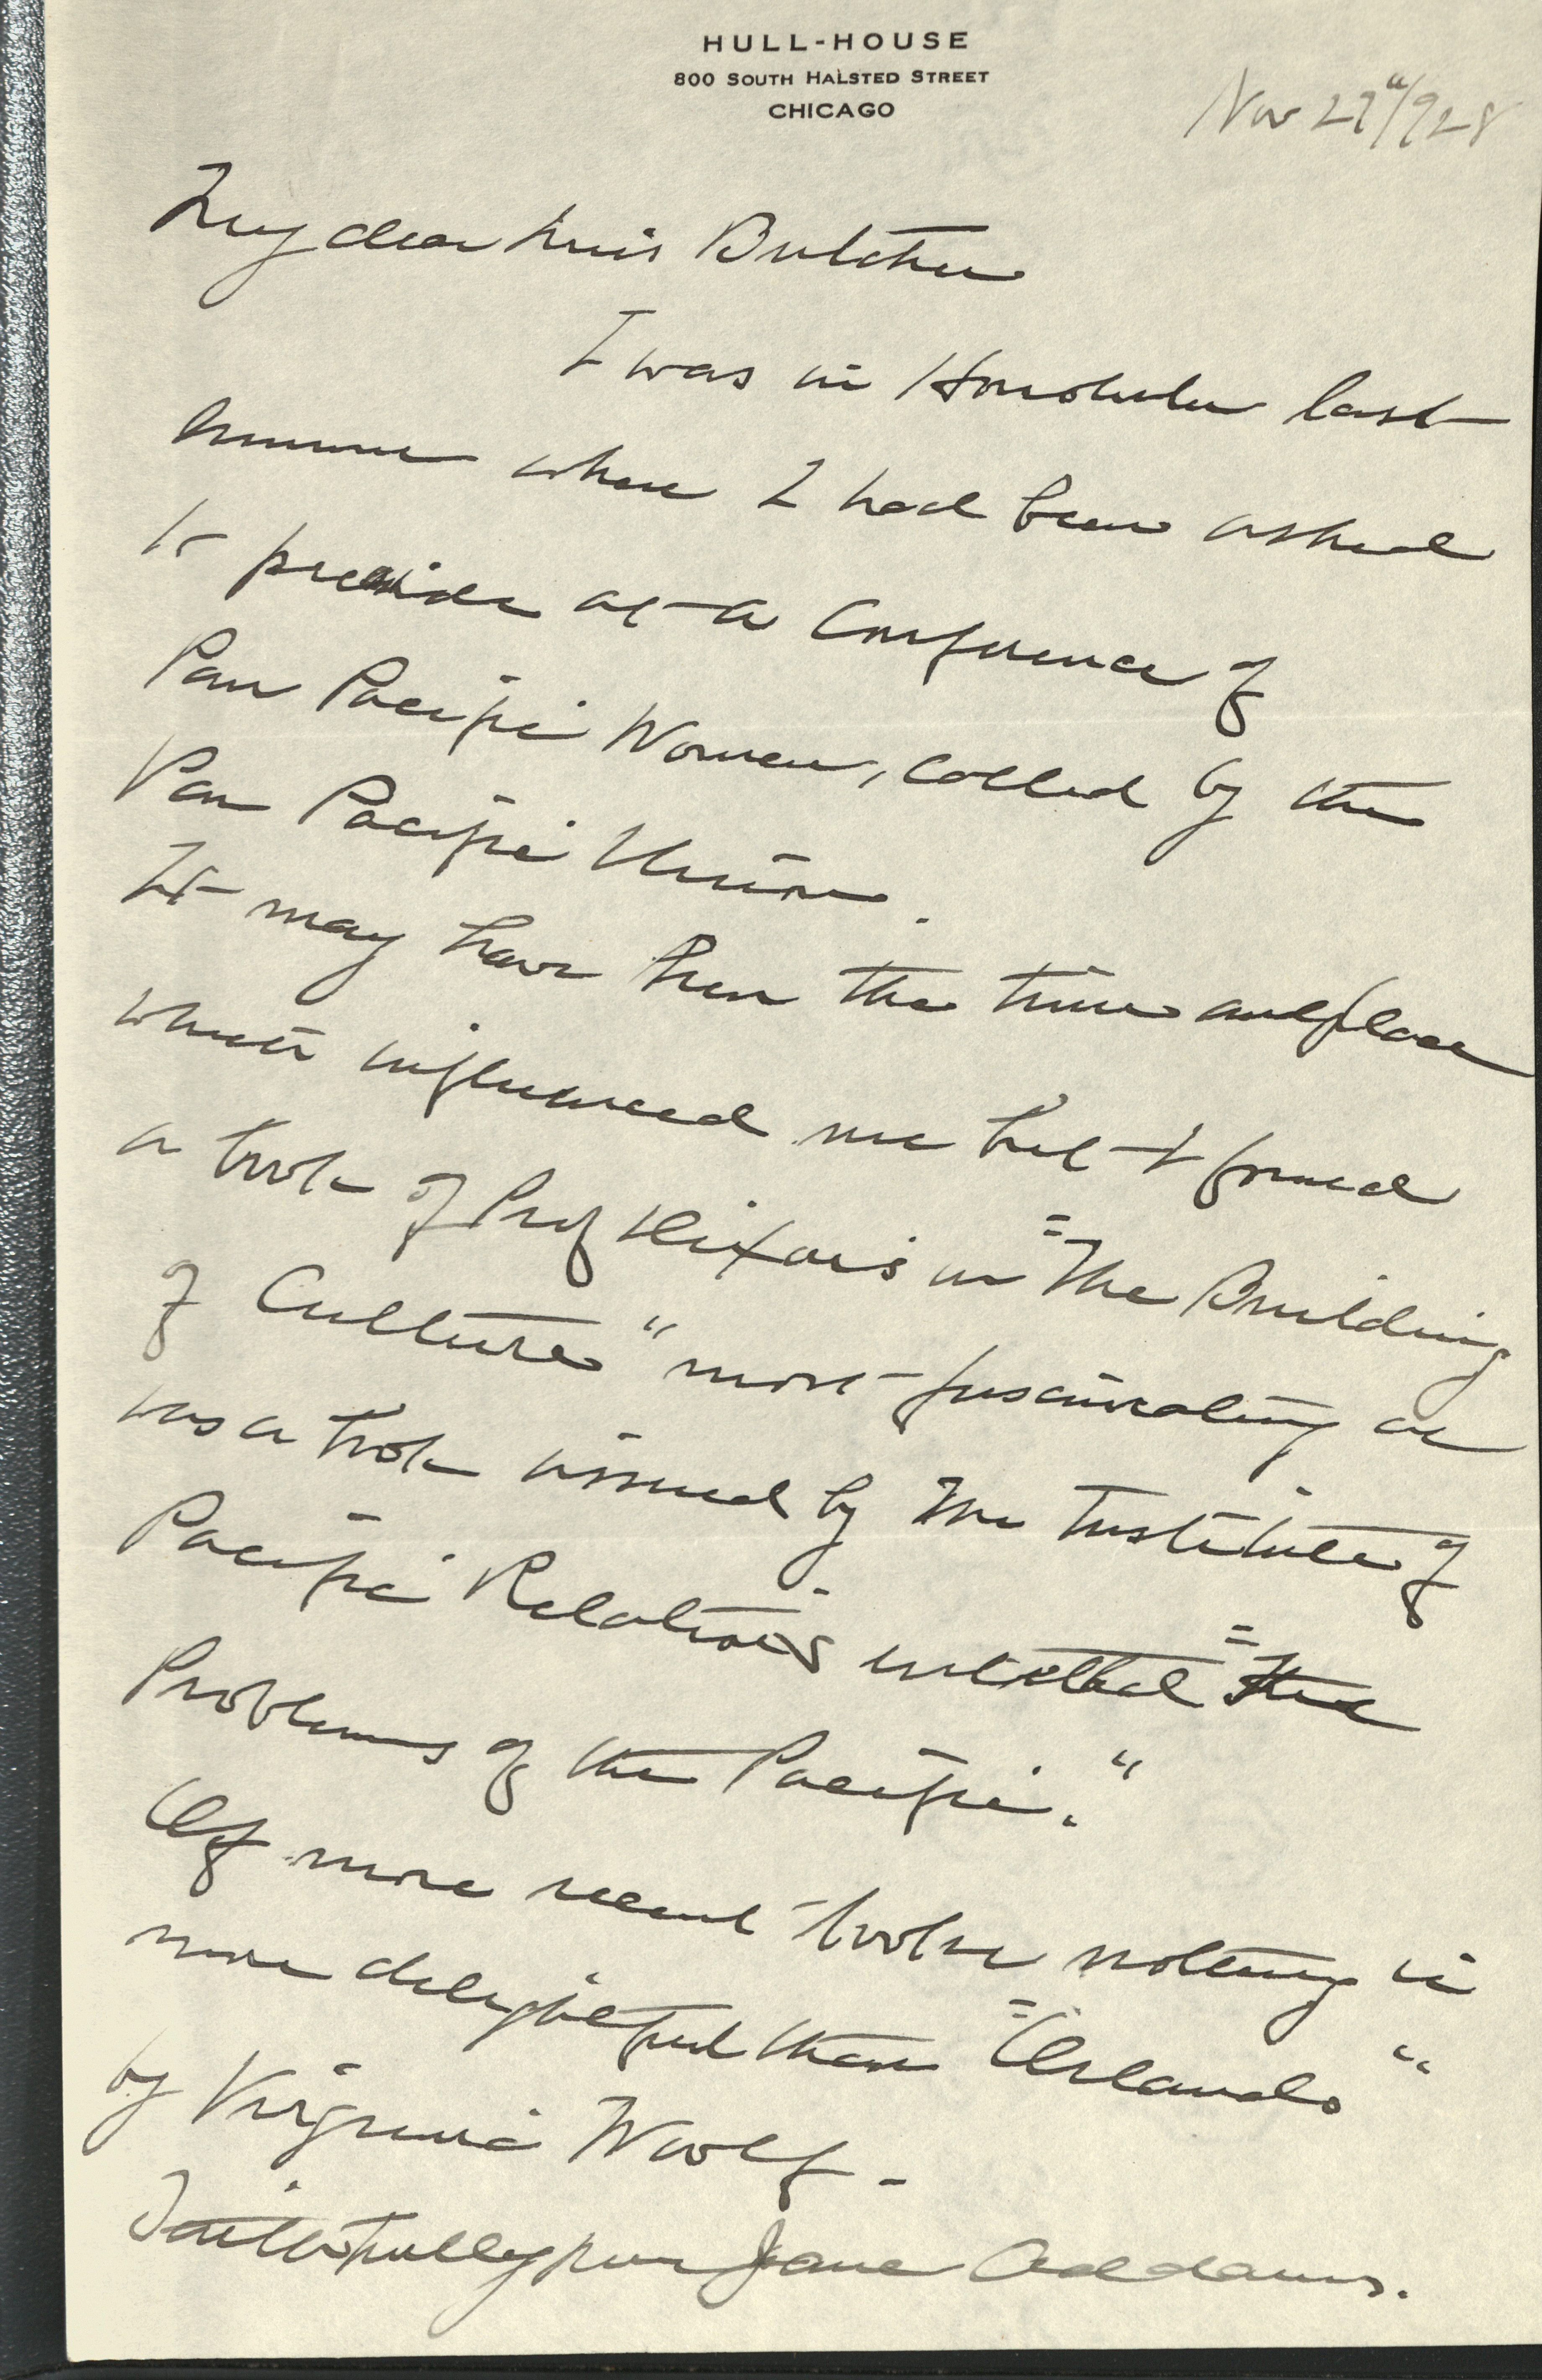 HULL-HOUSE
800 SOUTH HALSTED STREET
CHICAGO
Nov 27"/928
My dear Miss Butcher
I was in Honolulu last
summer where I had been asked
to preside at a Conference of
Pan Pacific Women, called by the
Pan Pacific Union.
It may have been the time and place
which influenced me but I found
a book of Prof Dixon's on "The Building
of Cultures" most fascinating as
was a book issued by The Institute of
Pacific Relations entitled "The
Problems of the Pacific."
Of more recent books nothing is
more delightful than "Orlando"
by Virginia Woolf -
Faithfully yours Jane Addams.